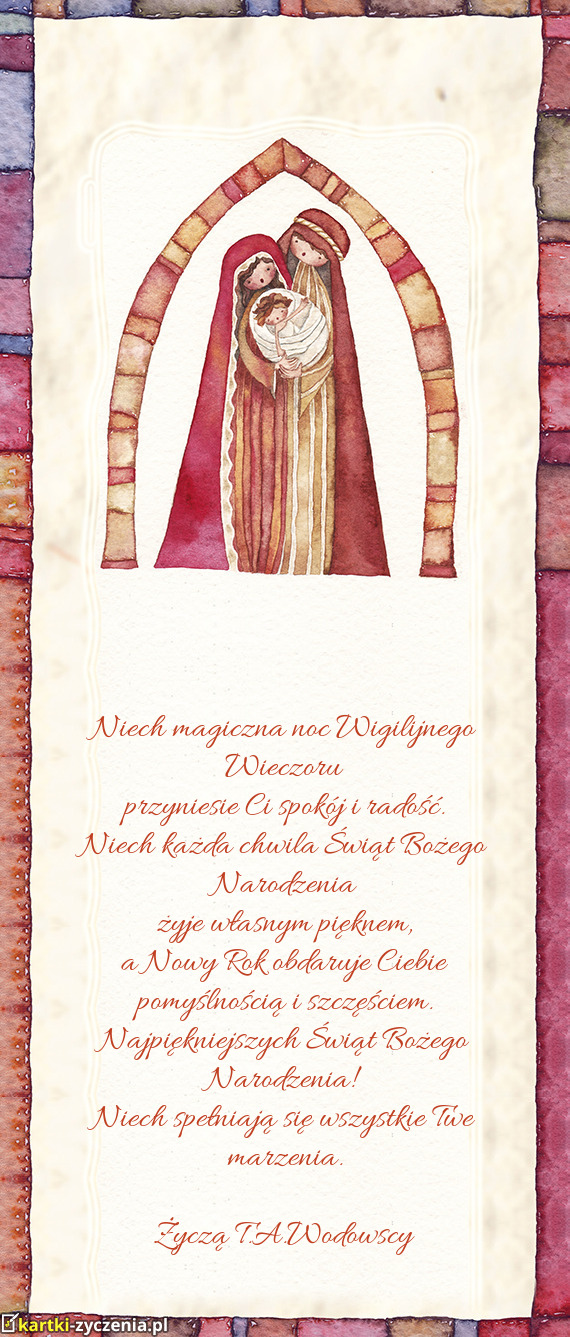 Niech magiczna noc Wigilijnego
Wieczoru
przyniesie Ci spokój i radość.
Niech każda chwila Świąt Bożego
Narodzenia
żyje własnym pięknem,
a Nowy Rok obdaruje Ciebie
pomyślnością i szczęściem.
Najpiękniejszych Świąt Bożego
Narodzenia!
Niech spełniają się wszystkie Twe
marzenia.
Życzą T.A.Wodowscy
kartki-zyczenia.pl